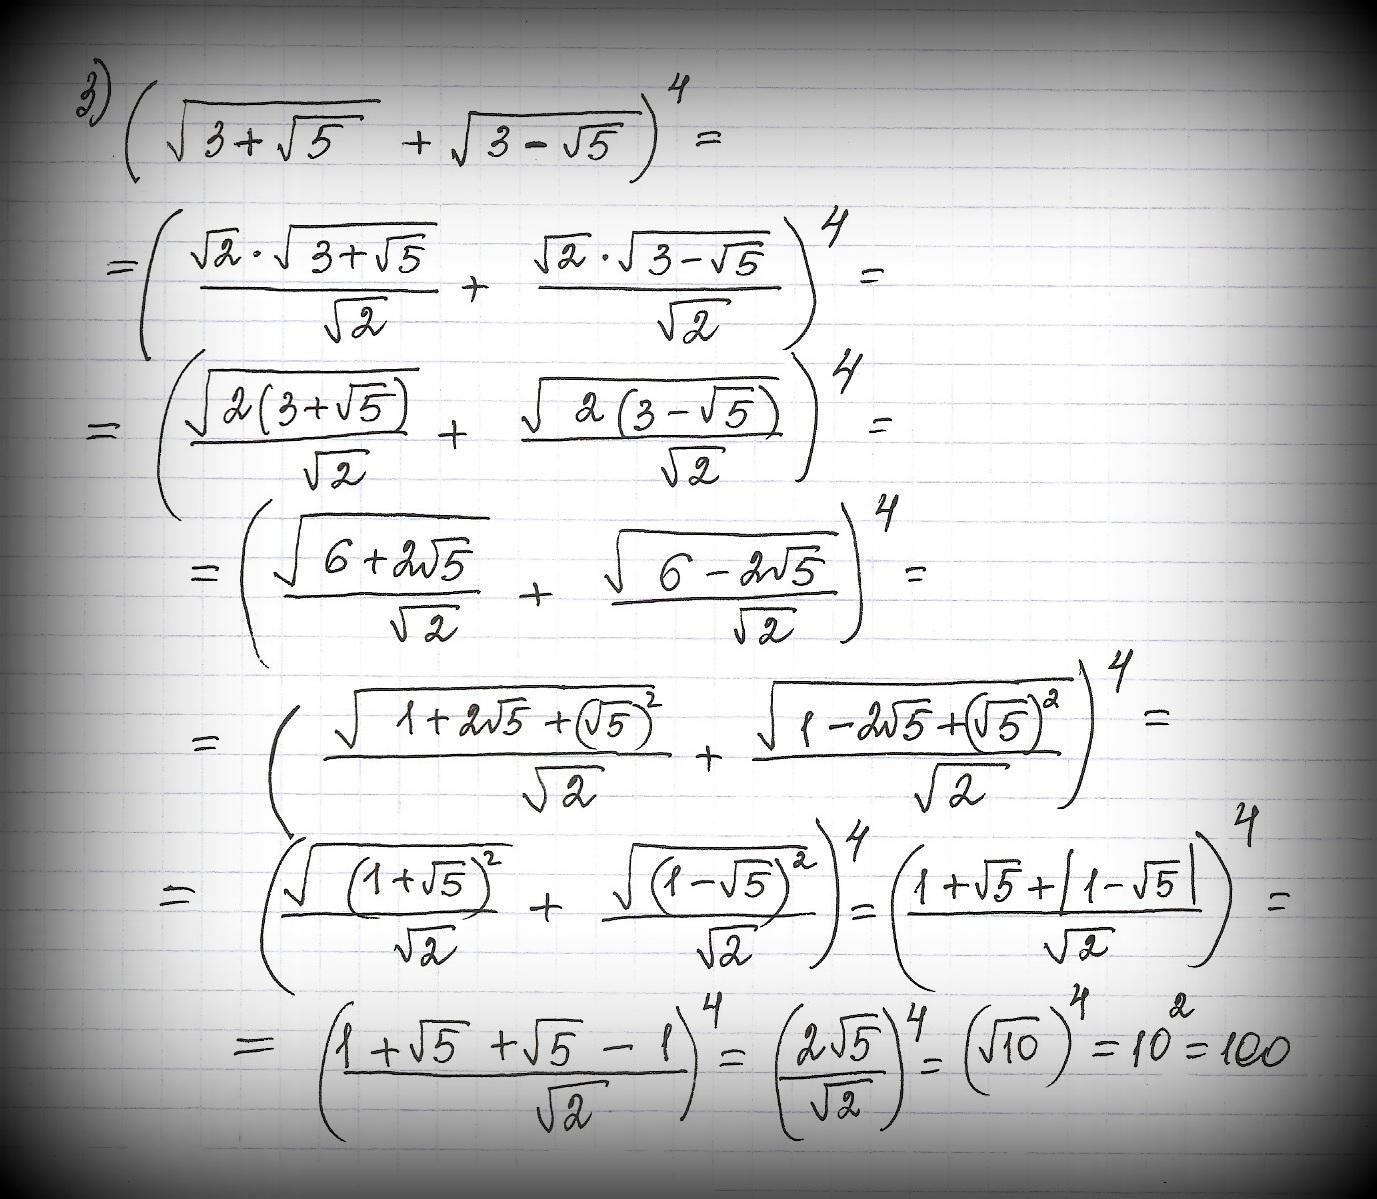 3) (√(3+√5) + √(3-√5))⁴ =
= (√2·√(3+√5)/√2 + √2·√(3-√5)/√2)⁴ =
= (√(2(3+√5))/√2 + √(2(3-√5))/√2)⁴ =
= (√(6+2√5)/√2 + √(6-2√5)/√2)⁴ =
= (√(1+2√5+(√5)²)/√2 + √(1-2√5+(√5)²)/√2)⁴ =
= (√((1+√5)²)/√2 + √((1-√5)²)/√2)⁴ = ((1+√5+|1-√5|)/√2)⁴ =
= ((1+√5+√5-1)/√2)⁴ = (2√5/√2)⁴ = (√10)⁴ = 10² = 100